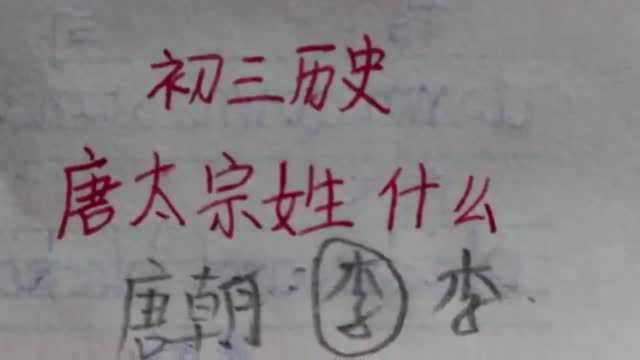 初三历史
唐太宗姓 什么
唐朝：李 李.